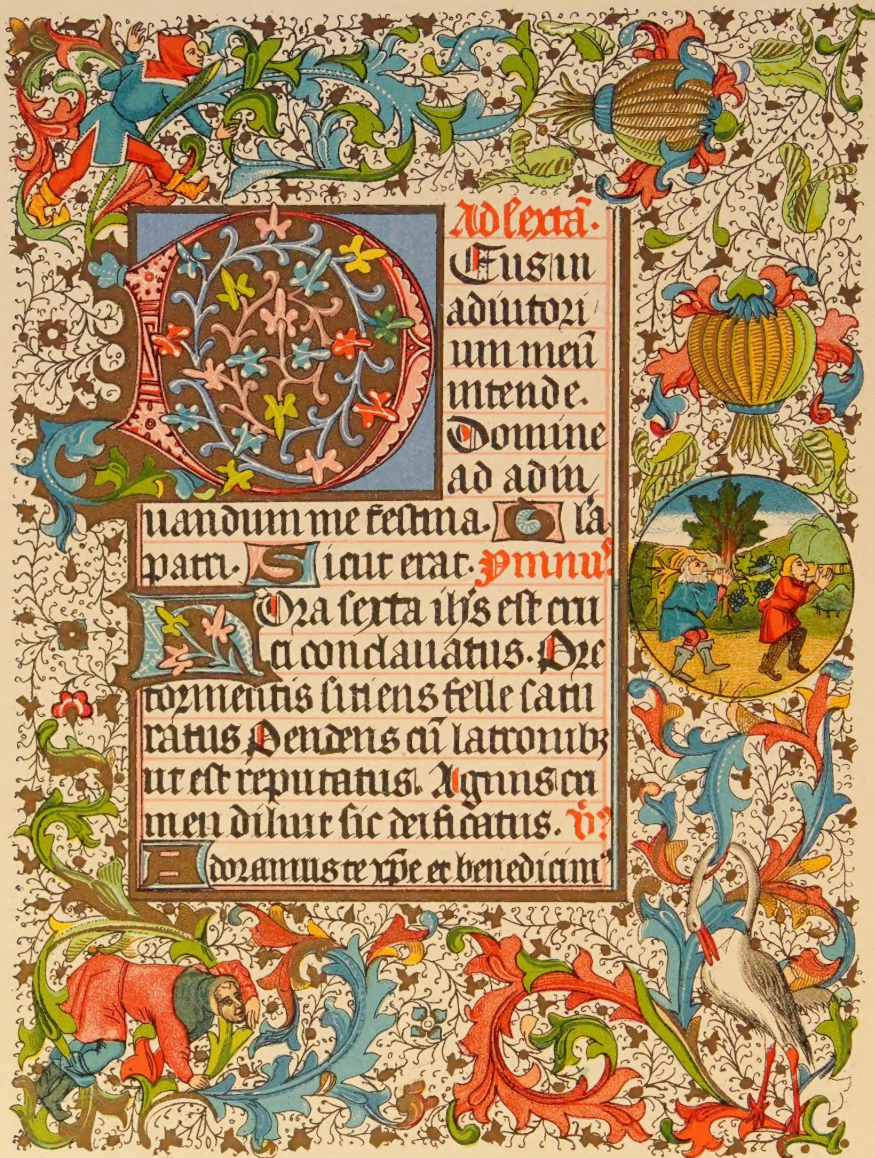 Ad sextā.
DEus in
adiutori
um meū
intende.
Domine
ad adiu
uandum me festina. Gl'a
patri. Sicut erat. ymnus
HOra sexta ih's est cru
ci conclauatus. Pre
tormentis sitiens felle satu
ratus Pendens cū latronibꝫ
ut est reputatus. Agnus cri
men diluit sic deificatus. v̊?
Adoramus te xp̄e et benedicim⁹